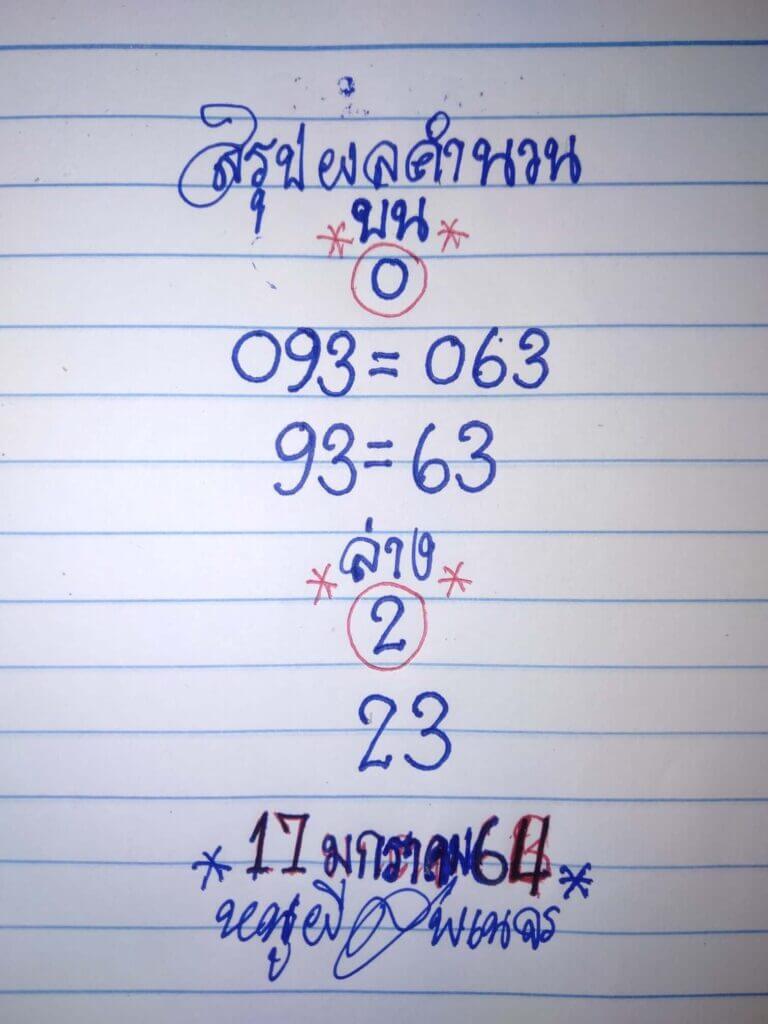 สรุปผลคำนวน
*บน*
0
093=063
93=63
*ล่าง*
2
23
*17 มกราคม64*
หนูผี พเนจร